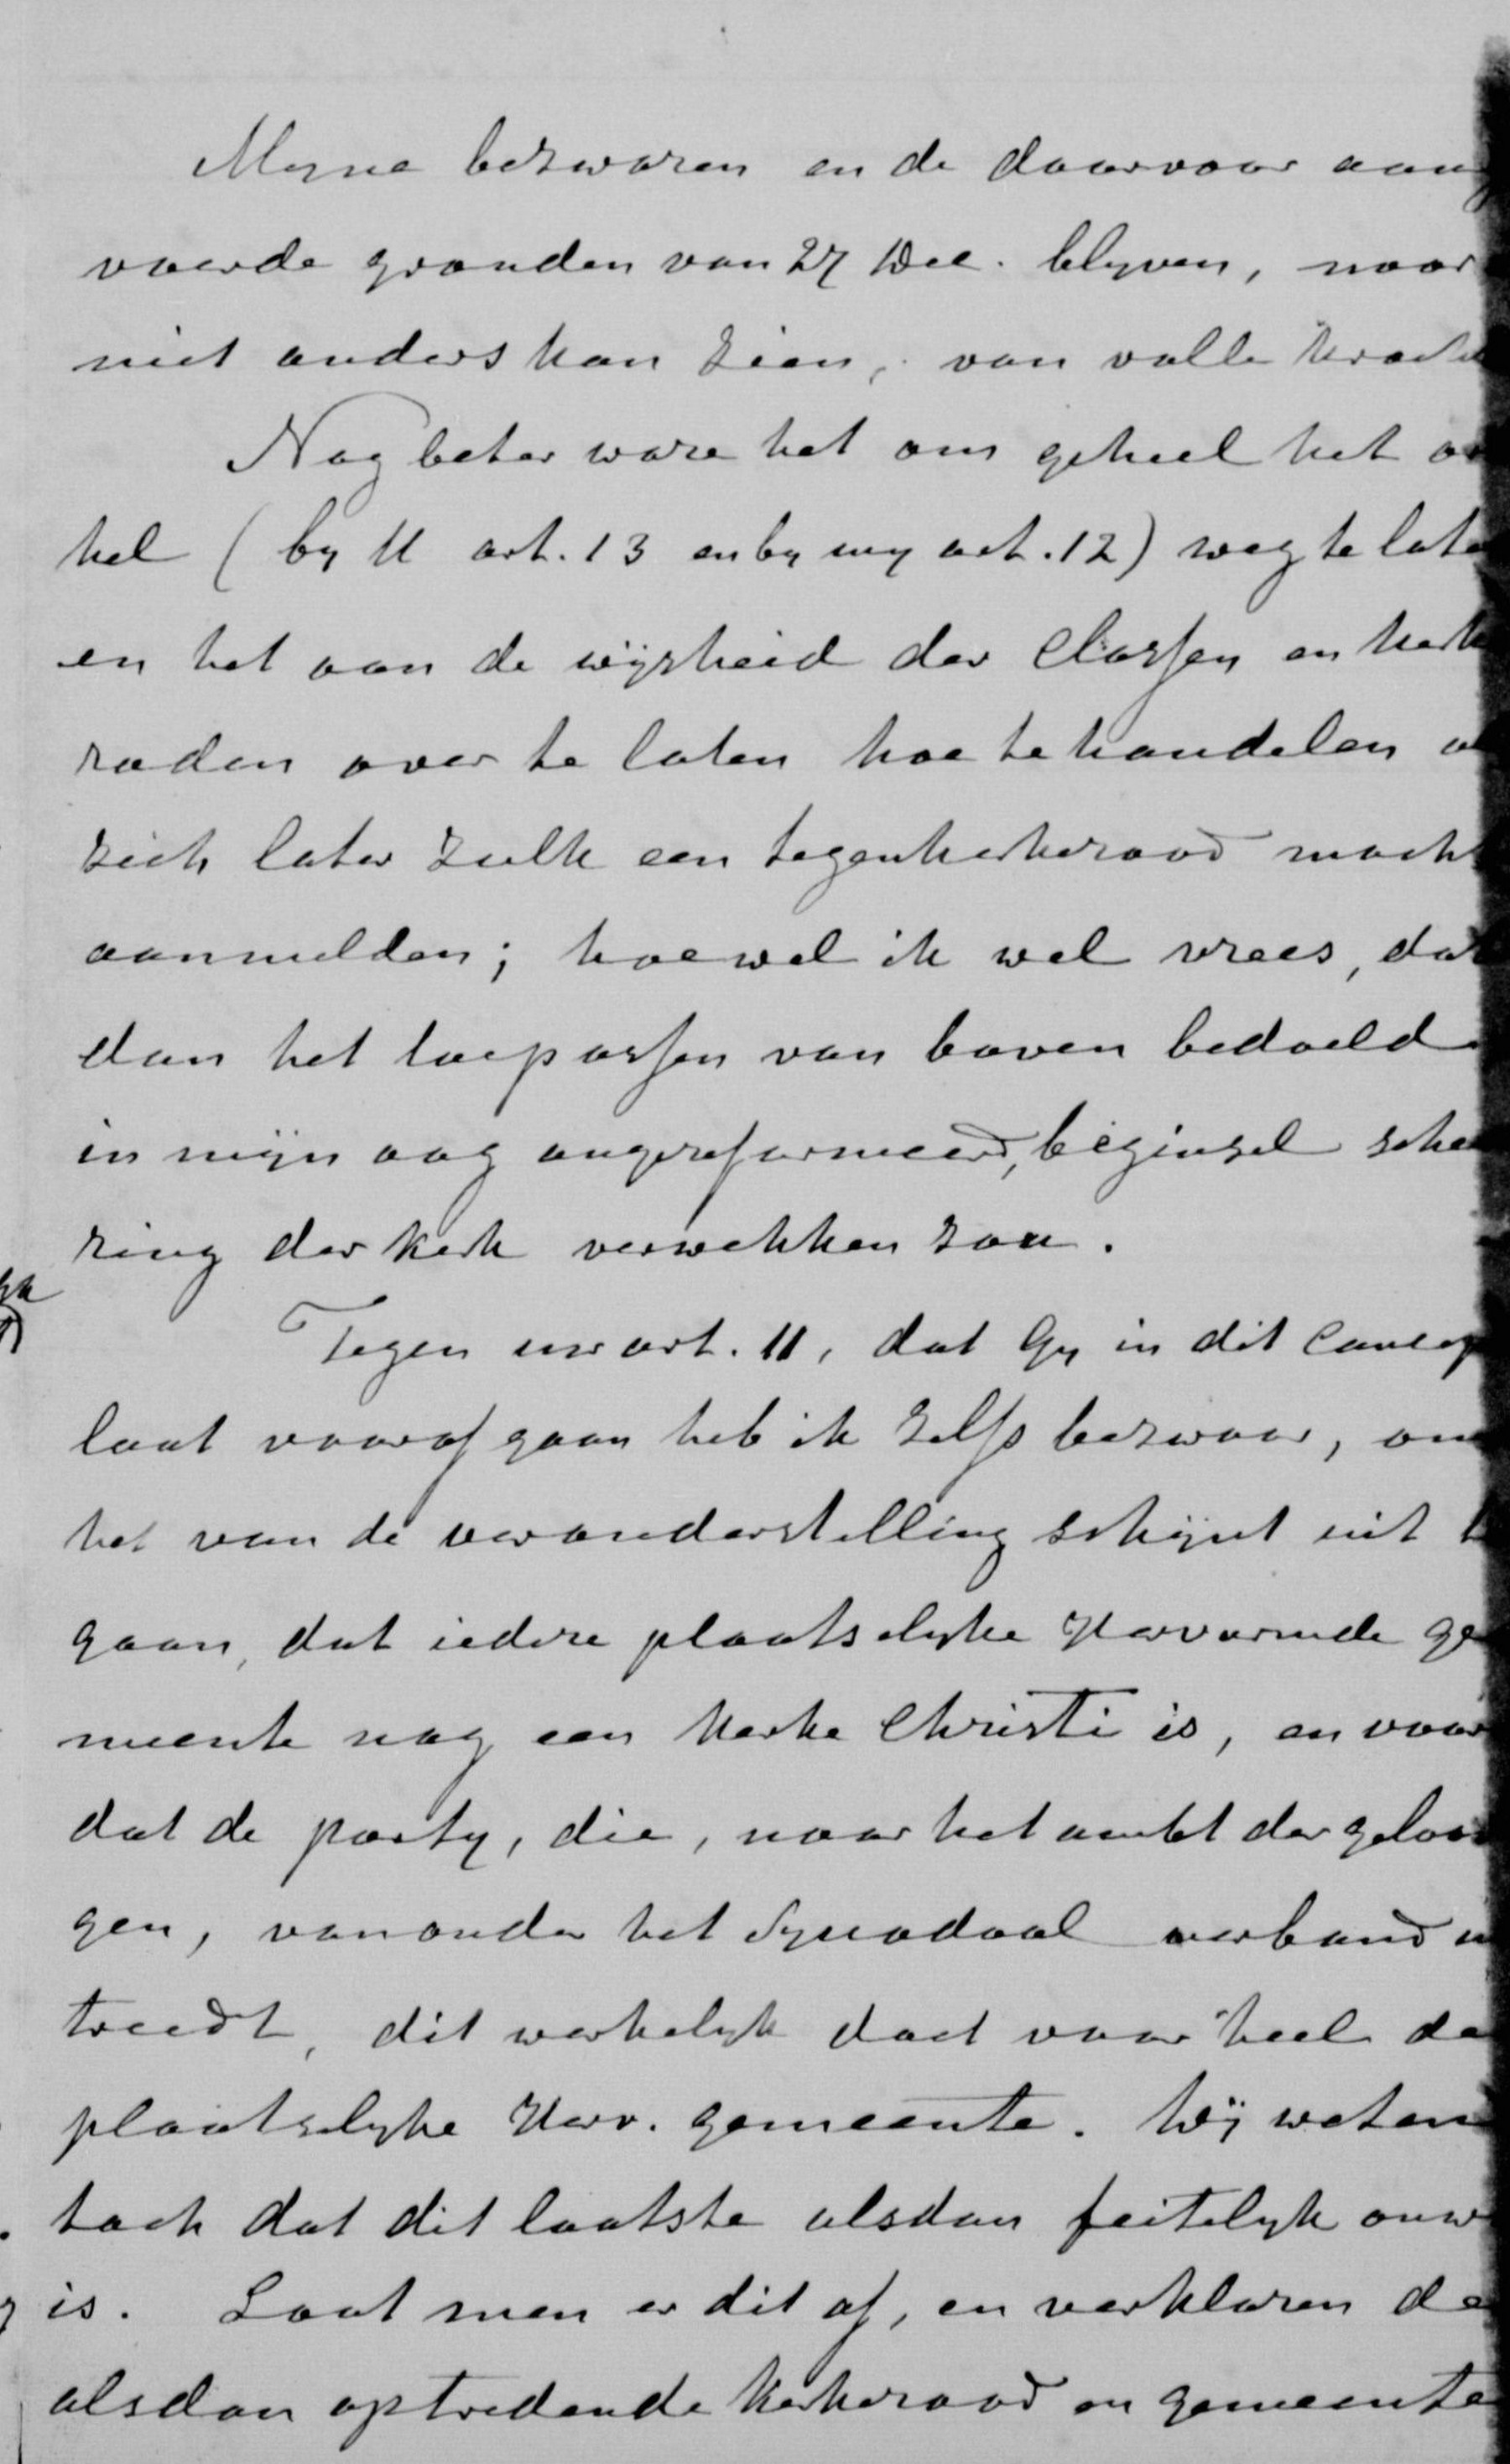 Myne bezwaren en de daarvoor aang
voerde gronden van 27 Dec. blyven, naar
niet anders kan zien, van volle kracht
Nog beter ware het om geheel het a
kel (by U art. 13 en by my art. 12) weg te late
en het aan de wijsheid der Classen en kerk
raden over te laten hoe te handelen a
zich later zulk een tegenkerkeraad mocht
aanmelden; hoewel ik wel vrees, dat
dan het toepassen van boven bedoeld
in mijn oog ongereformeerd, beginsel scheu
ring der kerk verwekken zou.
Tegen uw art. 11, dat Gy in dit Concep
laat voorafgaan heb ik zelfs bezwaar, om
het van de veronderstelling schijnt uit t
gaan, dat iedere plaatselyke Hervormde ge
meente nog een Kerke Christi is, en voor
dat de party, die, naar het ambt der geloo
gen, van onder het Synodaal verband u
treedt, dit werkelyk doet voor heel de
plaatselyke Herv. gemeente. Wij weten
toch dat dit laatste alsdan feitelyk onw
is. Laat men er dit af, en verklaren de
alsdan optredende Kerkeraad en gemeente